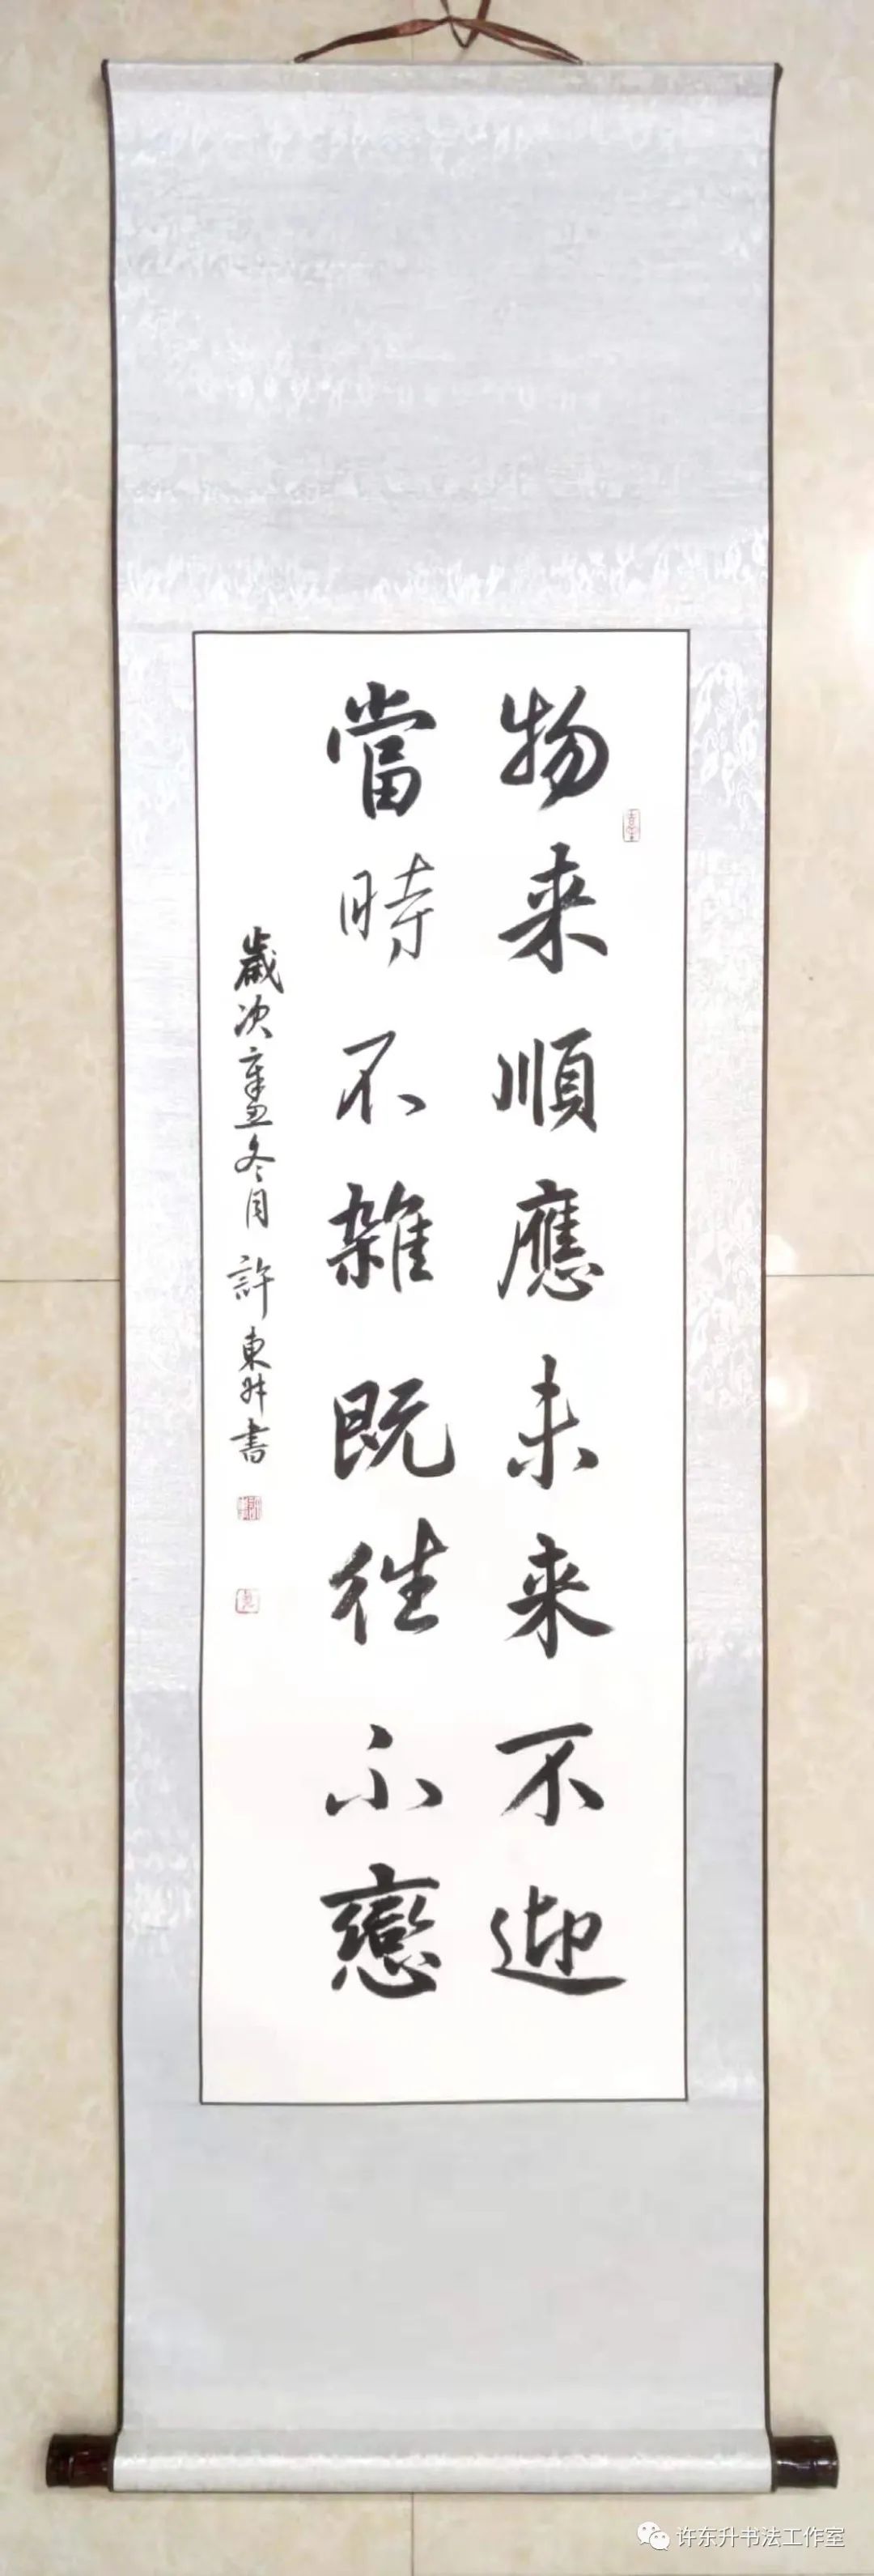 物来順應未来不迎
當時不雜既往不戀
歲次辛丑冬月 許東升書
许东升书法工作室